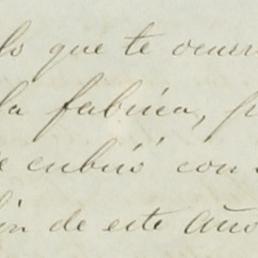 lo que te ocurr
la fabrica, p
e cubrió con
in de este Año